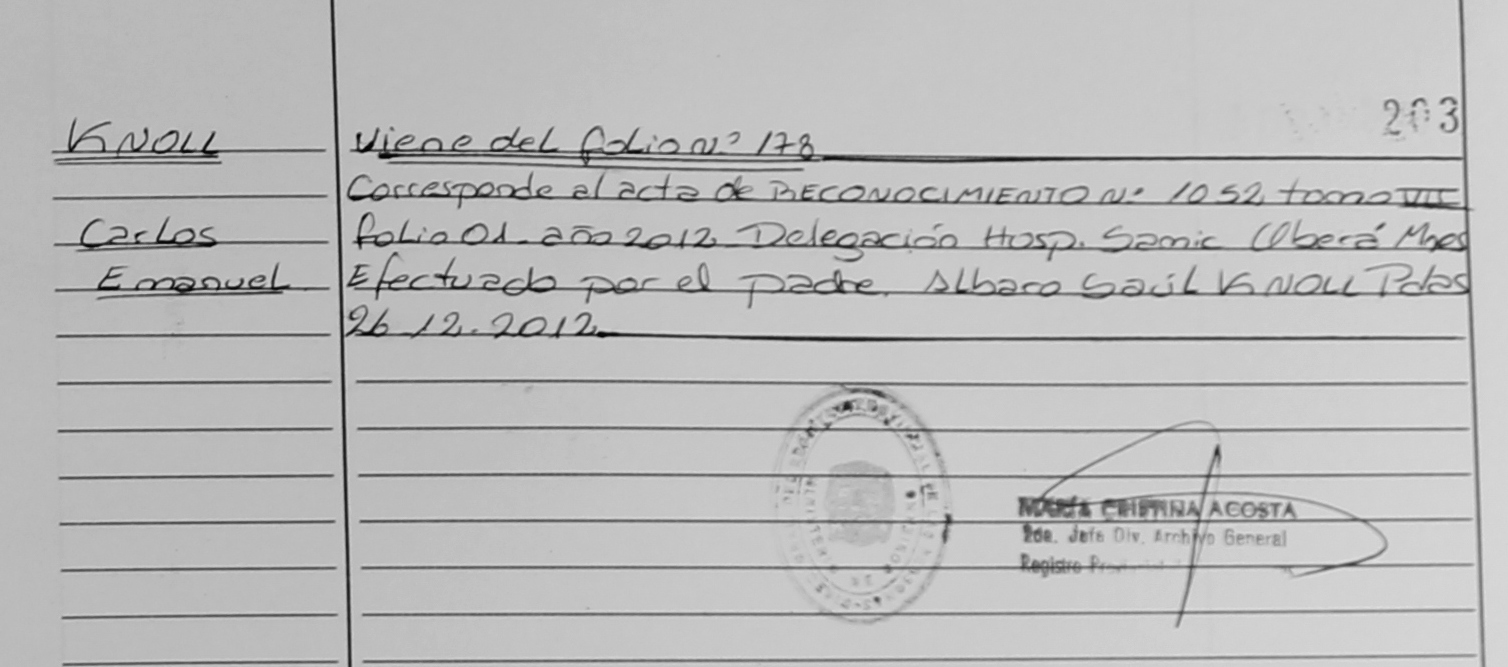 203
KNOLL Viene del folio Nº 178
Corresponde al acta de RECONOCIMIENTO Nº 1052, tomo VII
Carlos folio 01. año 2012. Delegación Hosp. Samic Oberá Mnes
Emanuel. Efectuado por el padre. Albaro Saúl KNOLL Pdas
26.12.2012.
MARÍA CRISTINA ACOSTA
2da. Jefe Div. Archivo General
Registro